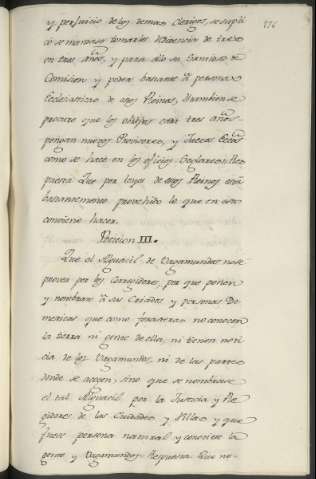 y perjuicio de los demas Clerigos, se suplicó
se mandase tomarles residencia de tres
en tres años, y para ello se
Comision y poder bastante à personas
Eclesiasticas de estos Reinos, tambien se
procure que los obispos cada tres años
pongan nuevos Provisores, y Jueces
como se hace en los oficios Seglares = Res
puesta. Que por leyes de estos Reynos está
bastantemente provehido lo que en esto
conviene hacer.
Peticion III.
Que el Alguacil de Vagamundos no se
provea por los Corregidores, por que ponen
y nombran à sus Criados y personas Do
mesticas que como forasteros no conocen
la tierra ni gente de ella, ni tienen noti
cia de los Vagamundos, ni de las partes
donde se acogen, sino que se nombrase
el tal Alguacil por la Justicia y Re
gidores de las Ciudades y Villas y que
fuese persona natural y conociere la
gente y Vagamundos Respuesta Que no-